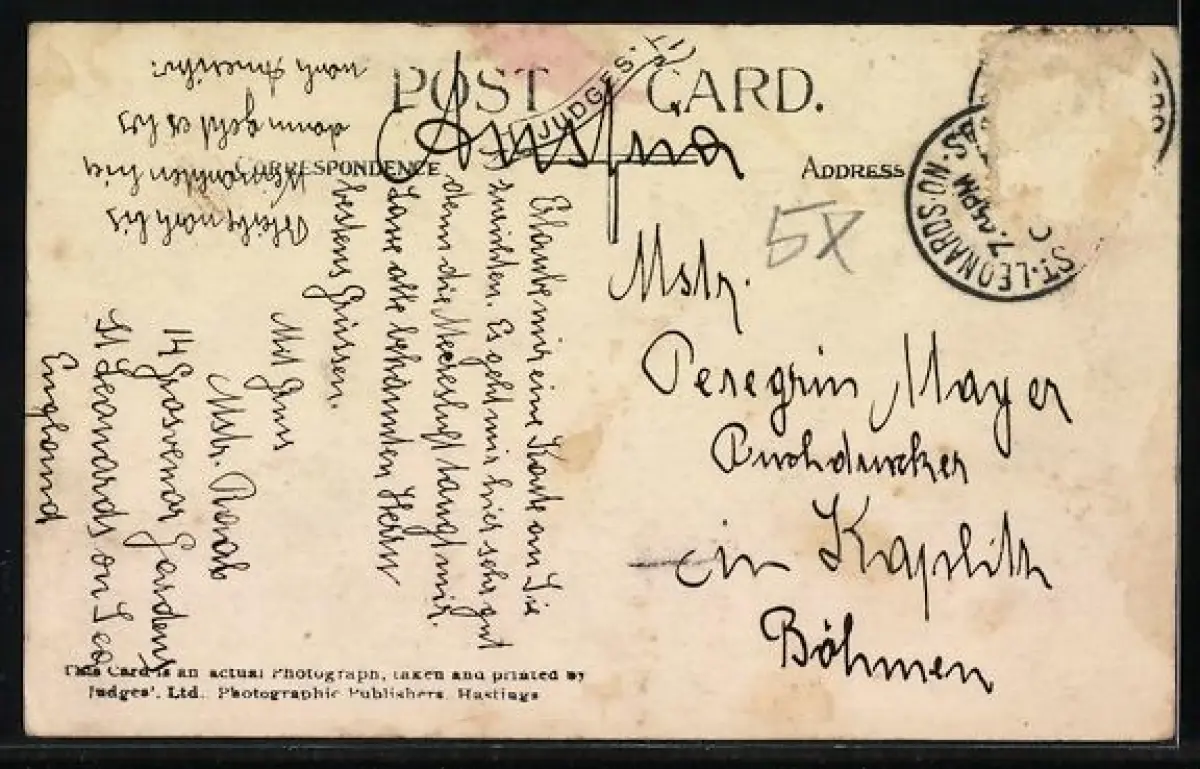 POST CARD.
JUDGES
Austria
CORRESPONDENCE
ADDRESS
ST. LEONARDS-ON-S
7. PM
5X
Mstr.
Peregrin Mayer
Buchdrucker
in Kaplitz
Böhmen
Erlaube mir eine Karte an Sie
zu richten. Es geht mir hier sehr gut
denn die Meeresluft taugt mir.
Lasse alle bekannten Herrn
bestens Grüssen.
Mit Gruss
Mstr. Raab
14 Grosvenor Gardens
St Leonards on Sea
England
Bleibe noch bis
hier
dann geht es los
nach Amerika.
This Card is an actual Photograph, taken and printed by
Judges', Ltd. Photographic Publishers, Hastings